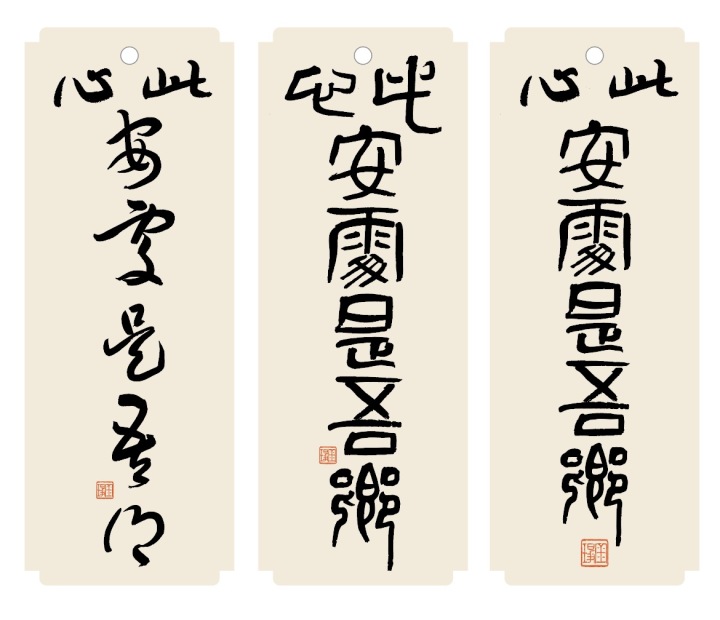 此心
安處是吾鄉
此心
安處是吾鄉
此心
安處是吾鄉